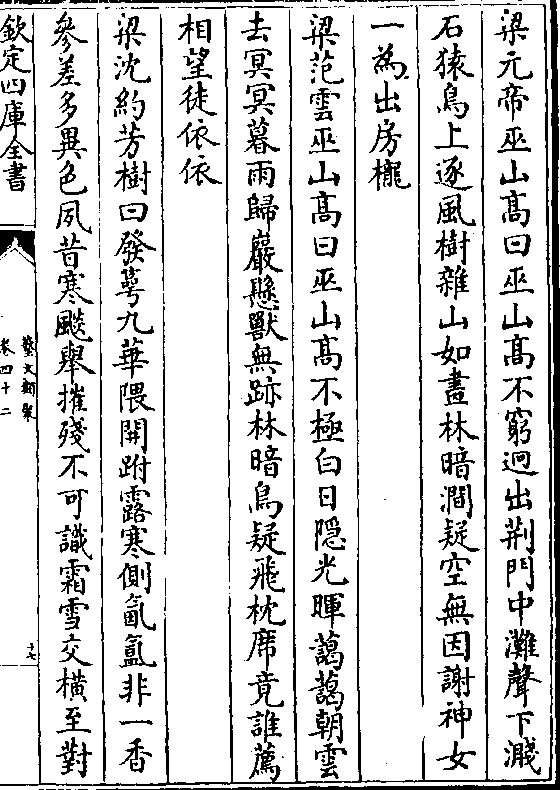 梁元帝巫山髙曰巫山髙不窮迥出荆門中灘聲下濺
石猿鳥上逐風樹雜山如畫林暗澗疑空無因謝神女
一為出房櫳
梁范雲巫山髙曰巫山髙不極白日隠光暉藹藹朝雲
去冥冥暮雨歸巖懸獸無跡林暗鳥疑飛枕席竟誰薦
相望徒依依
梁沈約芳樹曰發萼九華隈開跗露寒側氤氲非一香
參差多異色夙昔寒飈舉摧殘不可識霜雪交橫至對
欽定四庫全書
藝文類聚
卷四十二
十七